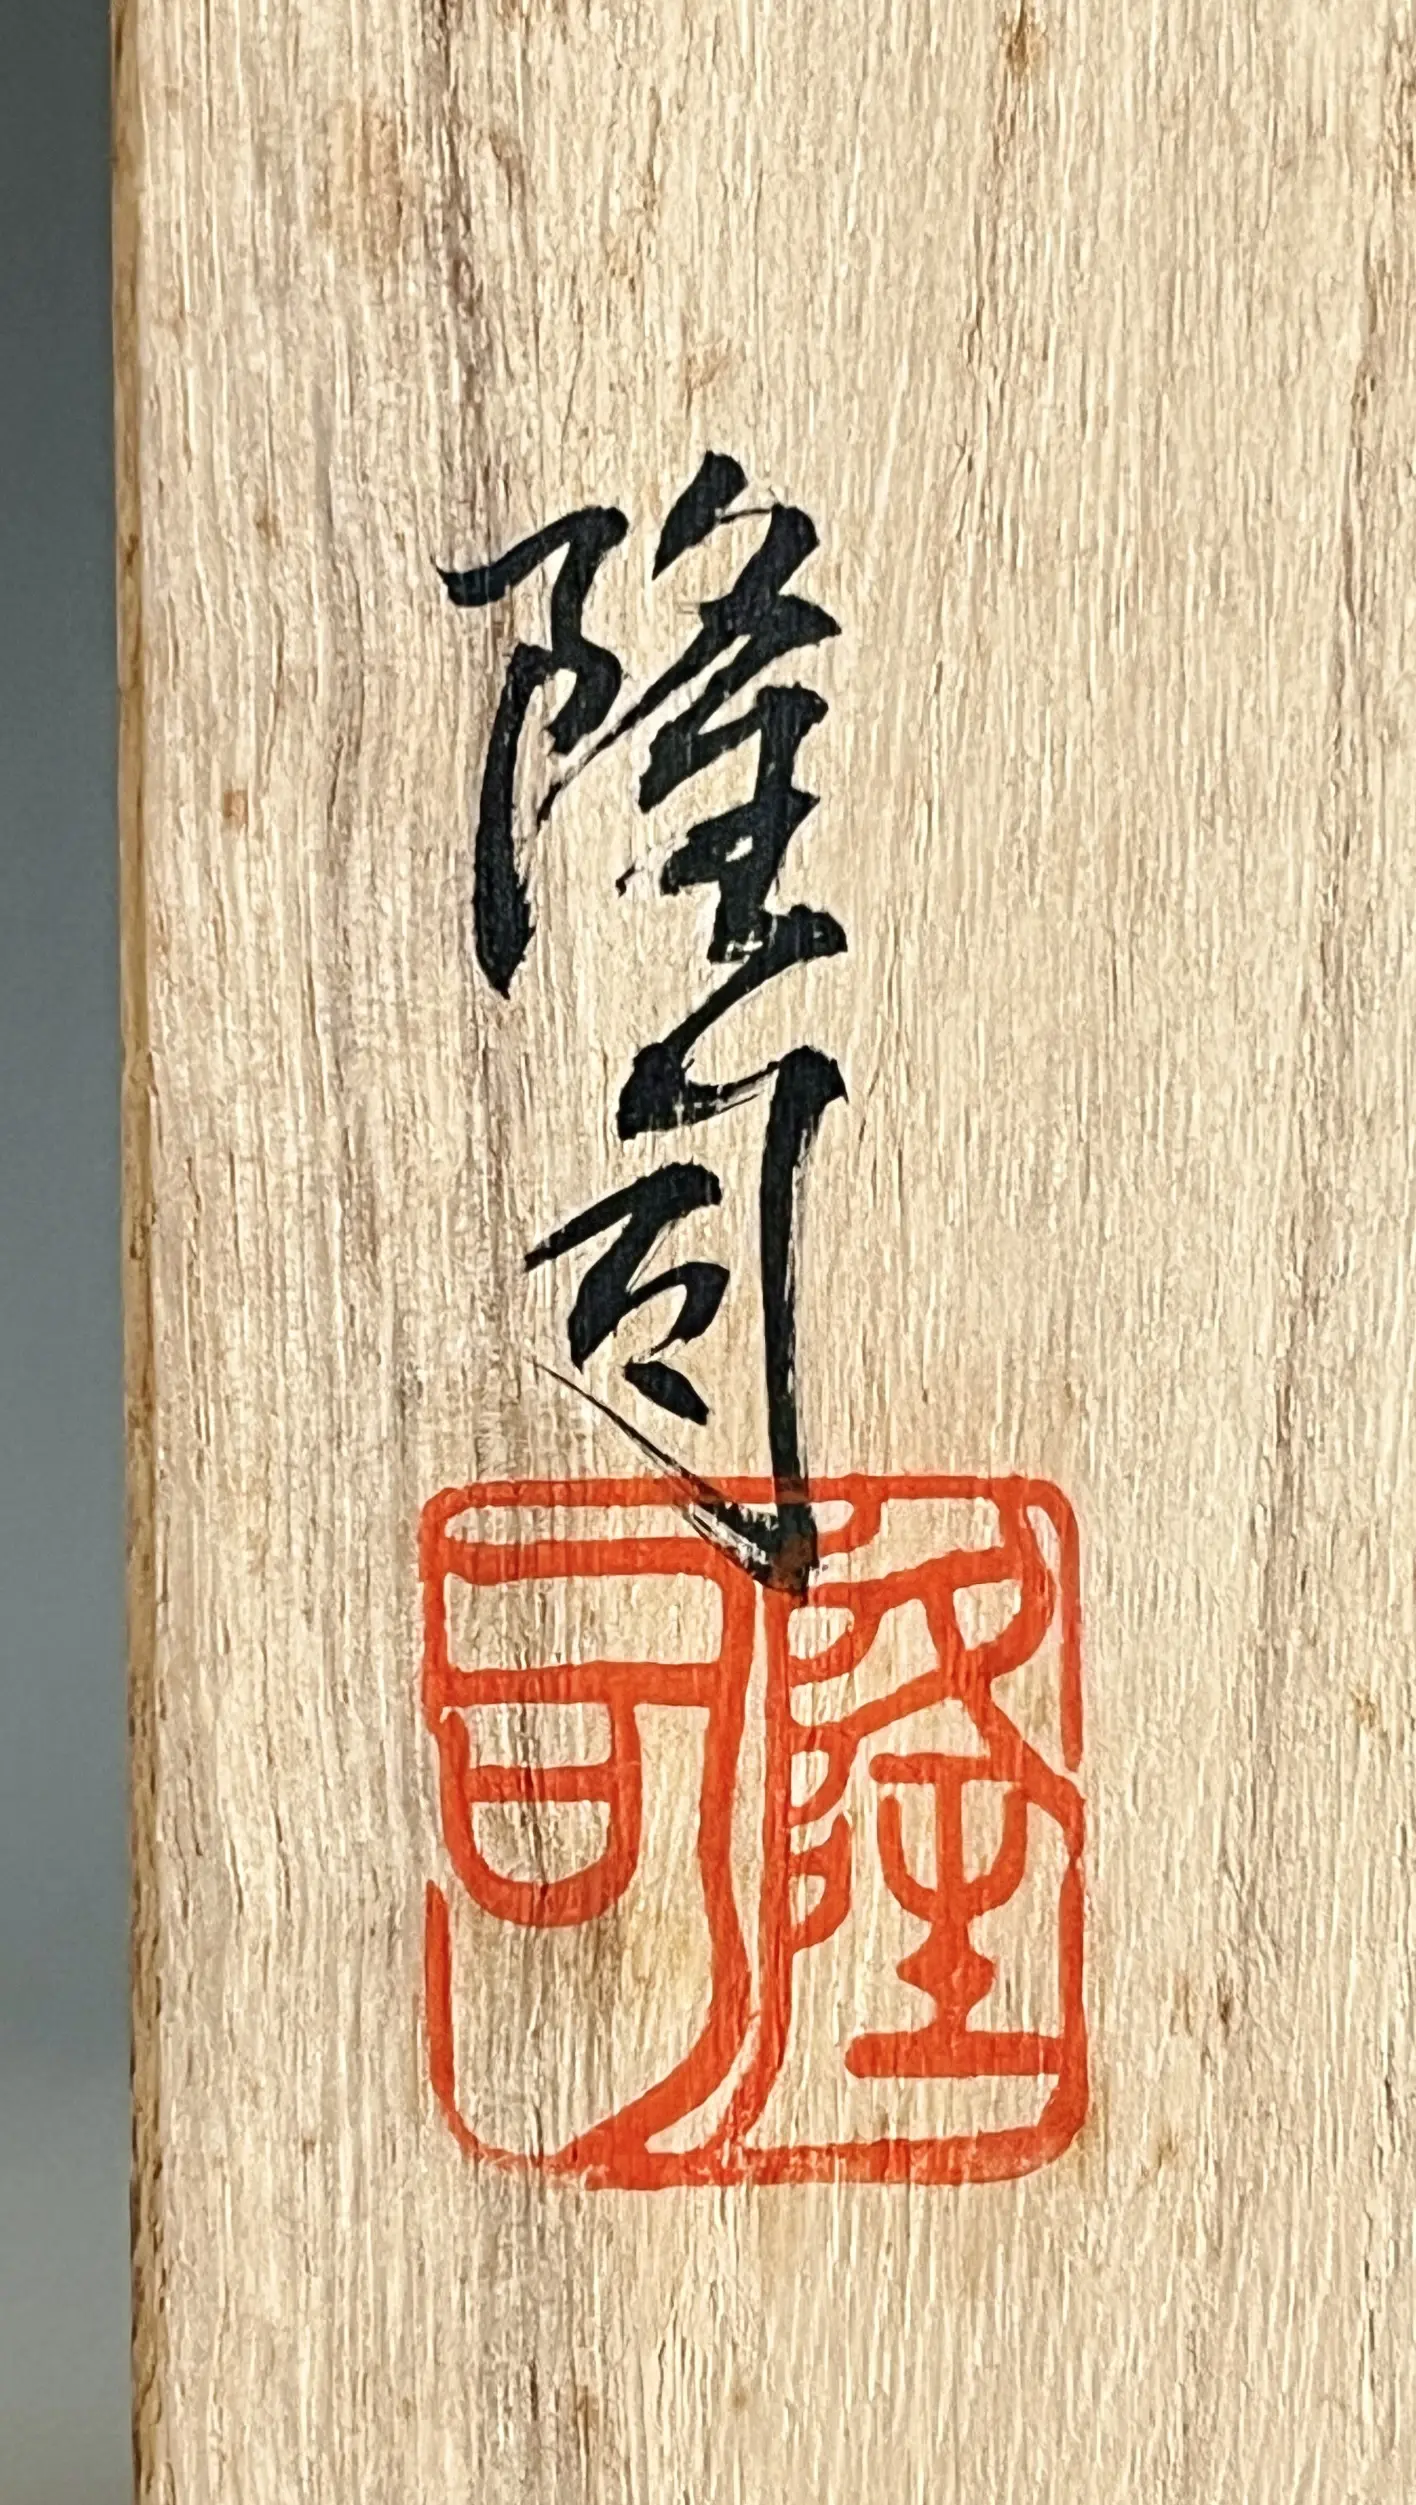 隆司
隆司